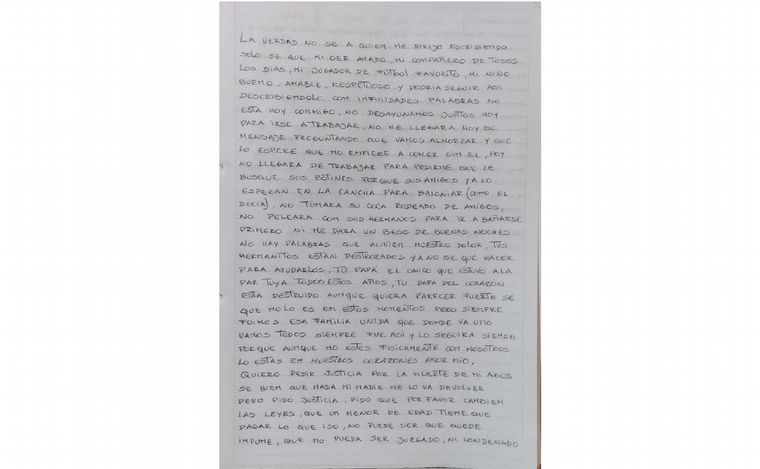 LA VERDAD NO SE A QUIEN ME DIRIJO ESCRIBIENDO
SOLO SE QUE MI SER AMADO, MI COMPAÑERO DE TODOS
LOS DIAS, MI JUGADOR DE FUTBOL FAVORITO, MI NIÑO
BUENO, AMABLE, RESPETUOSO Y PODRIA SEGUIR ASI
DESCRIBIENDOLO CON INFINIDADES PALABRAS NO
ESTA HOY CONMIGO, NO DESAYUNAMOS JUNTOS HOY
PARA IRSE A TRABAJAR, NO ME LLEGARA HOY SU
MENSAJE PREGUNTANDO QUE VAMOS ALMORZAR Y QUE
LO ESPERE QUE NO EMPIECE A COMER SIN EL, HOY
NO LLEGARA DE TRABAJAR PARA PEDIRME QUE LE
BUSQUE SUS BOTINES PORQUE SUS AMIGOS YA LO
ESPERAN EN LA CANCHA PARA BALONIAR (COMO EL
DECIA), NO TOMARA SU COCA RODEADO DE AMIGOS,
NO PELEARA CON SUS HERMANOS PARA IR A BAÑARSE
PRIMERO NI ME DARA UN BESO DE BUENAS NOCHES.
NO HAY PALABRAS QUE ALIVIEN NUESTRO DOLOR, TUS
HERMANITOS ESTAN DESTROZADOS YA NO SE QUE HACER
PARA AYUDARLOS, TU PAPÁ EL UNICO QUE ESTUVO A LA
PAR TUYA TODOS ESTOS AÑOS, TU PAPA DEL CORAZON
ESTA DESTRUIDO AUNQUE QUIERA PARECER FUERTE SE
QUE NO LO ES EN ESTOS MOMENTOS PERO SIEMPRE
FUIMOS ESA FAMILIA UNIDA QUE DONDE VA UNO
VAMOS TODOS SIEMPRE FUE ASI Y LO SEGUIRA SIENDO
PORQUE AUNQUE NO ESTES FISICAMENTE CON NOSOTROS
LO ESTAS EN NUESTROS CORAZONES AMOR MIO.
QUIERO PEDIR JUSTICIA POR LA MUERTE DE MI AGUS
SE BIEN QUE NADA NI NADIE ME LO VA DEVOLVER
PERO PIDO JUSTICIA, PIDO QUE POR FAVOR CAMBIEN
LAS LEYES, QUE UN MENOR DE EDAD TIENE QUE
PAGAR LO QUE ISO, NO PUEDE SER QUE QUEDE
IMPUNE, QUE NO PUEDA SER JUZGADO, NI CONDENADO